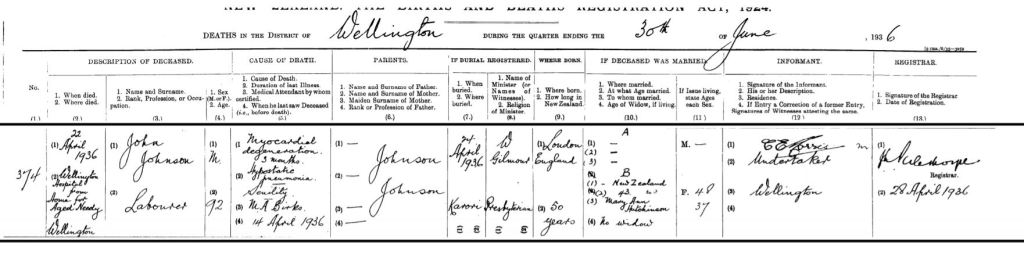 NEW ZEALAND. THE BIRTHS AND DEATHS REGISTRATION ACT, 1924.
DEATHS IN THE DISTRICT OF Wellington DURING THE QUARTER ENDING THE 30th OF June , 1936
DESCRIPTION OF DECEASED. CAUSE OF DEATH. PARENTS. IF BURIAL REGISTERED. WHERE BORN. IF DECEASED WAS MARRIED. INFORMANT. REGISTRAR.
No.
1. When died.
2. Where died.
1. Name and Surname.
2. Rank, Profession, or Occupation.
1. Sex (M. or F.).
2. Age.
1. Cause of Death.
2. Duration of last Illness
3. Medical Attendant by whom certified.
4. When he last saw Deceased (i.e., before death).
1. Name and Surname of Father.
2. Name and Surname of Mother.
3. Maiden Surname of Mother.
4. Rank or Profession of Father.
1. When buried.
2. Where buried.
1. Name of Minister (or Names of Witnesses).
2. Religion of Minister.
1. Where born.
2. How long in New Zealand.
1. Where married.
2. At what Age married.
3. To whom married.
4. Age of Widow, if living.
If Issue living, state Ages each Sex.
1. Signature of the Informant.
2. His or her Description.
3. Residence.
4. If Entry a Correction of a former Entry, Signatures of Witnesses attesting the same.
1. Signature of the Registrar
2. Date of Registration.
(1.) (2.) (3.) (4.) (5.) (6.) (7.) (8.) (9.) (10.) (11.) (12.) (13.)
374
(1) 22 April 1936
(2) Wellington Hospital from Home for Aged Needy Wellington
(1) John Johnson
(2) Labourer
(1) M.
(2) 92
(1) Myocardial degeneration.
3 months.
(2) Hypostatic pneumonia.
Senility
(3) M. R. Birks.
(4) 14 April 1936
(1) — Johnson
(2) — Johnson
(3) —
(4) —
24 April 1936
Karori
W Gilmour
Presbyterian
(1) London England
(2) 50 years
A
(1) —
(2) —
(3) —
B
(1) - New Zealand
(2) 43
(3) Mary Ann Hutchinson
(4) No widow
M. —
F. 48
37
(1)
(2) Undertaker
(3) Wellington
(4)
(1)
Registrar.
(2) 28 April 1936